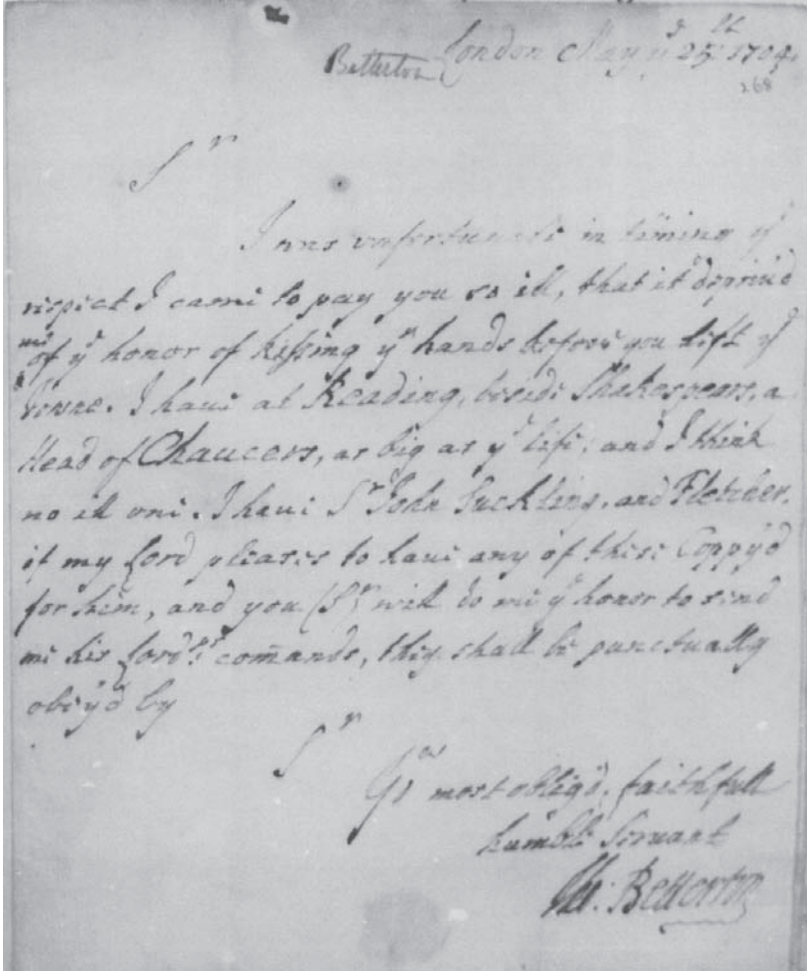 Betterton London May yᵉ 25ᵗʰ 1704.
268
Sʳ
I was unfortunate in timeing yᵉ
respect I came to pay you so ill, that it depriu'd
me of yᵉ honor of kissing yʳ hands before you left yᵉ
Towne. I haue at Reading, beside Shakespears, a
Head of Chaucers, as big as yᵉ life; and I think
no ill one. I haue Sʳ John Suckling, and Fletcher.
if my Lord pleases to haue any of these Coppy'd
for him, and you (Sʳ) will do me yᵉ honor to send
me his Lordᵖˢ com̄ands, they shall be punctually
obey'd by
Sʳ
Yoʳ most oblig'd, faithfull
humble Servant
Tho: Betterton